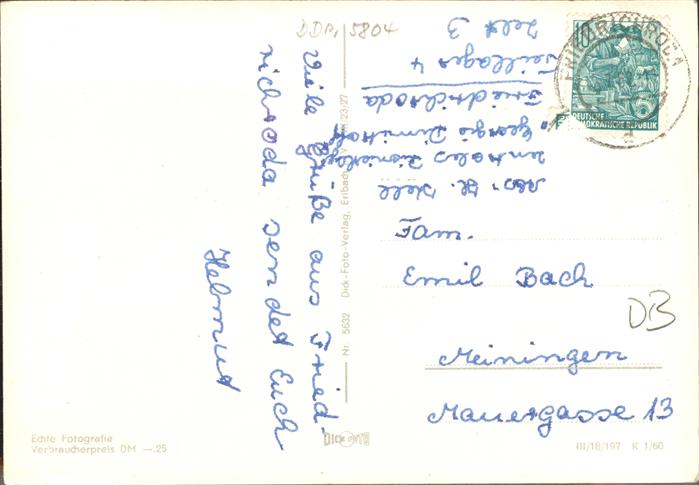 DDR, 5804
Viele Grüße aus Fried-
richroda sendet Euch
Helmut
Abs. H. Hell
Zentrales Pionierlager
"Georgi Dimitroff"
Friedrichroda
Teillager 4
Zelt 3
10
DEUTSCHE
DEMOKRATISCHE REPUBLIK
FRIEDRICHRODA
Fam.
Emil Bach
Meiningen
Mauergasse 13
DB
Nr. 5632 Dick-Foto-Verlag, Erlbach
23/27
DICK FOTO
Echte Fotografie
Verbraucherpreis DM —.25
III/18/197 K 1/60